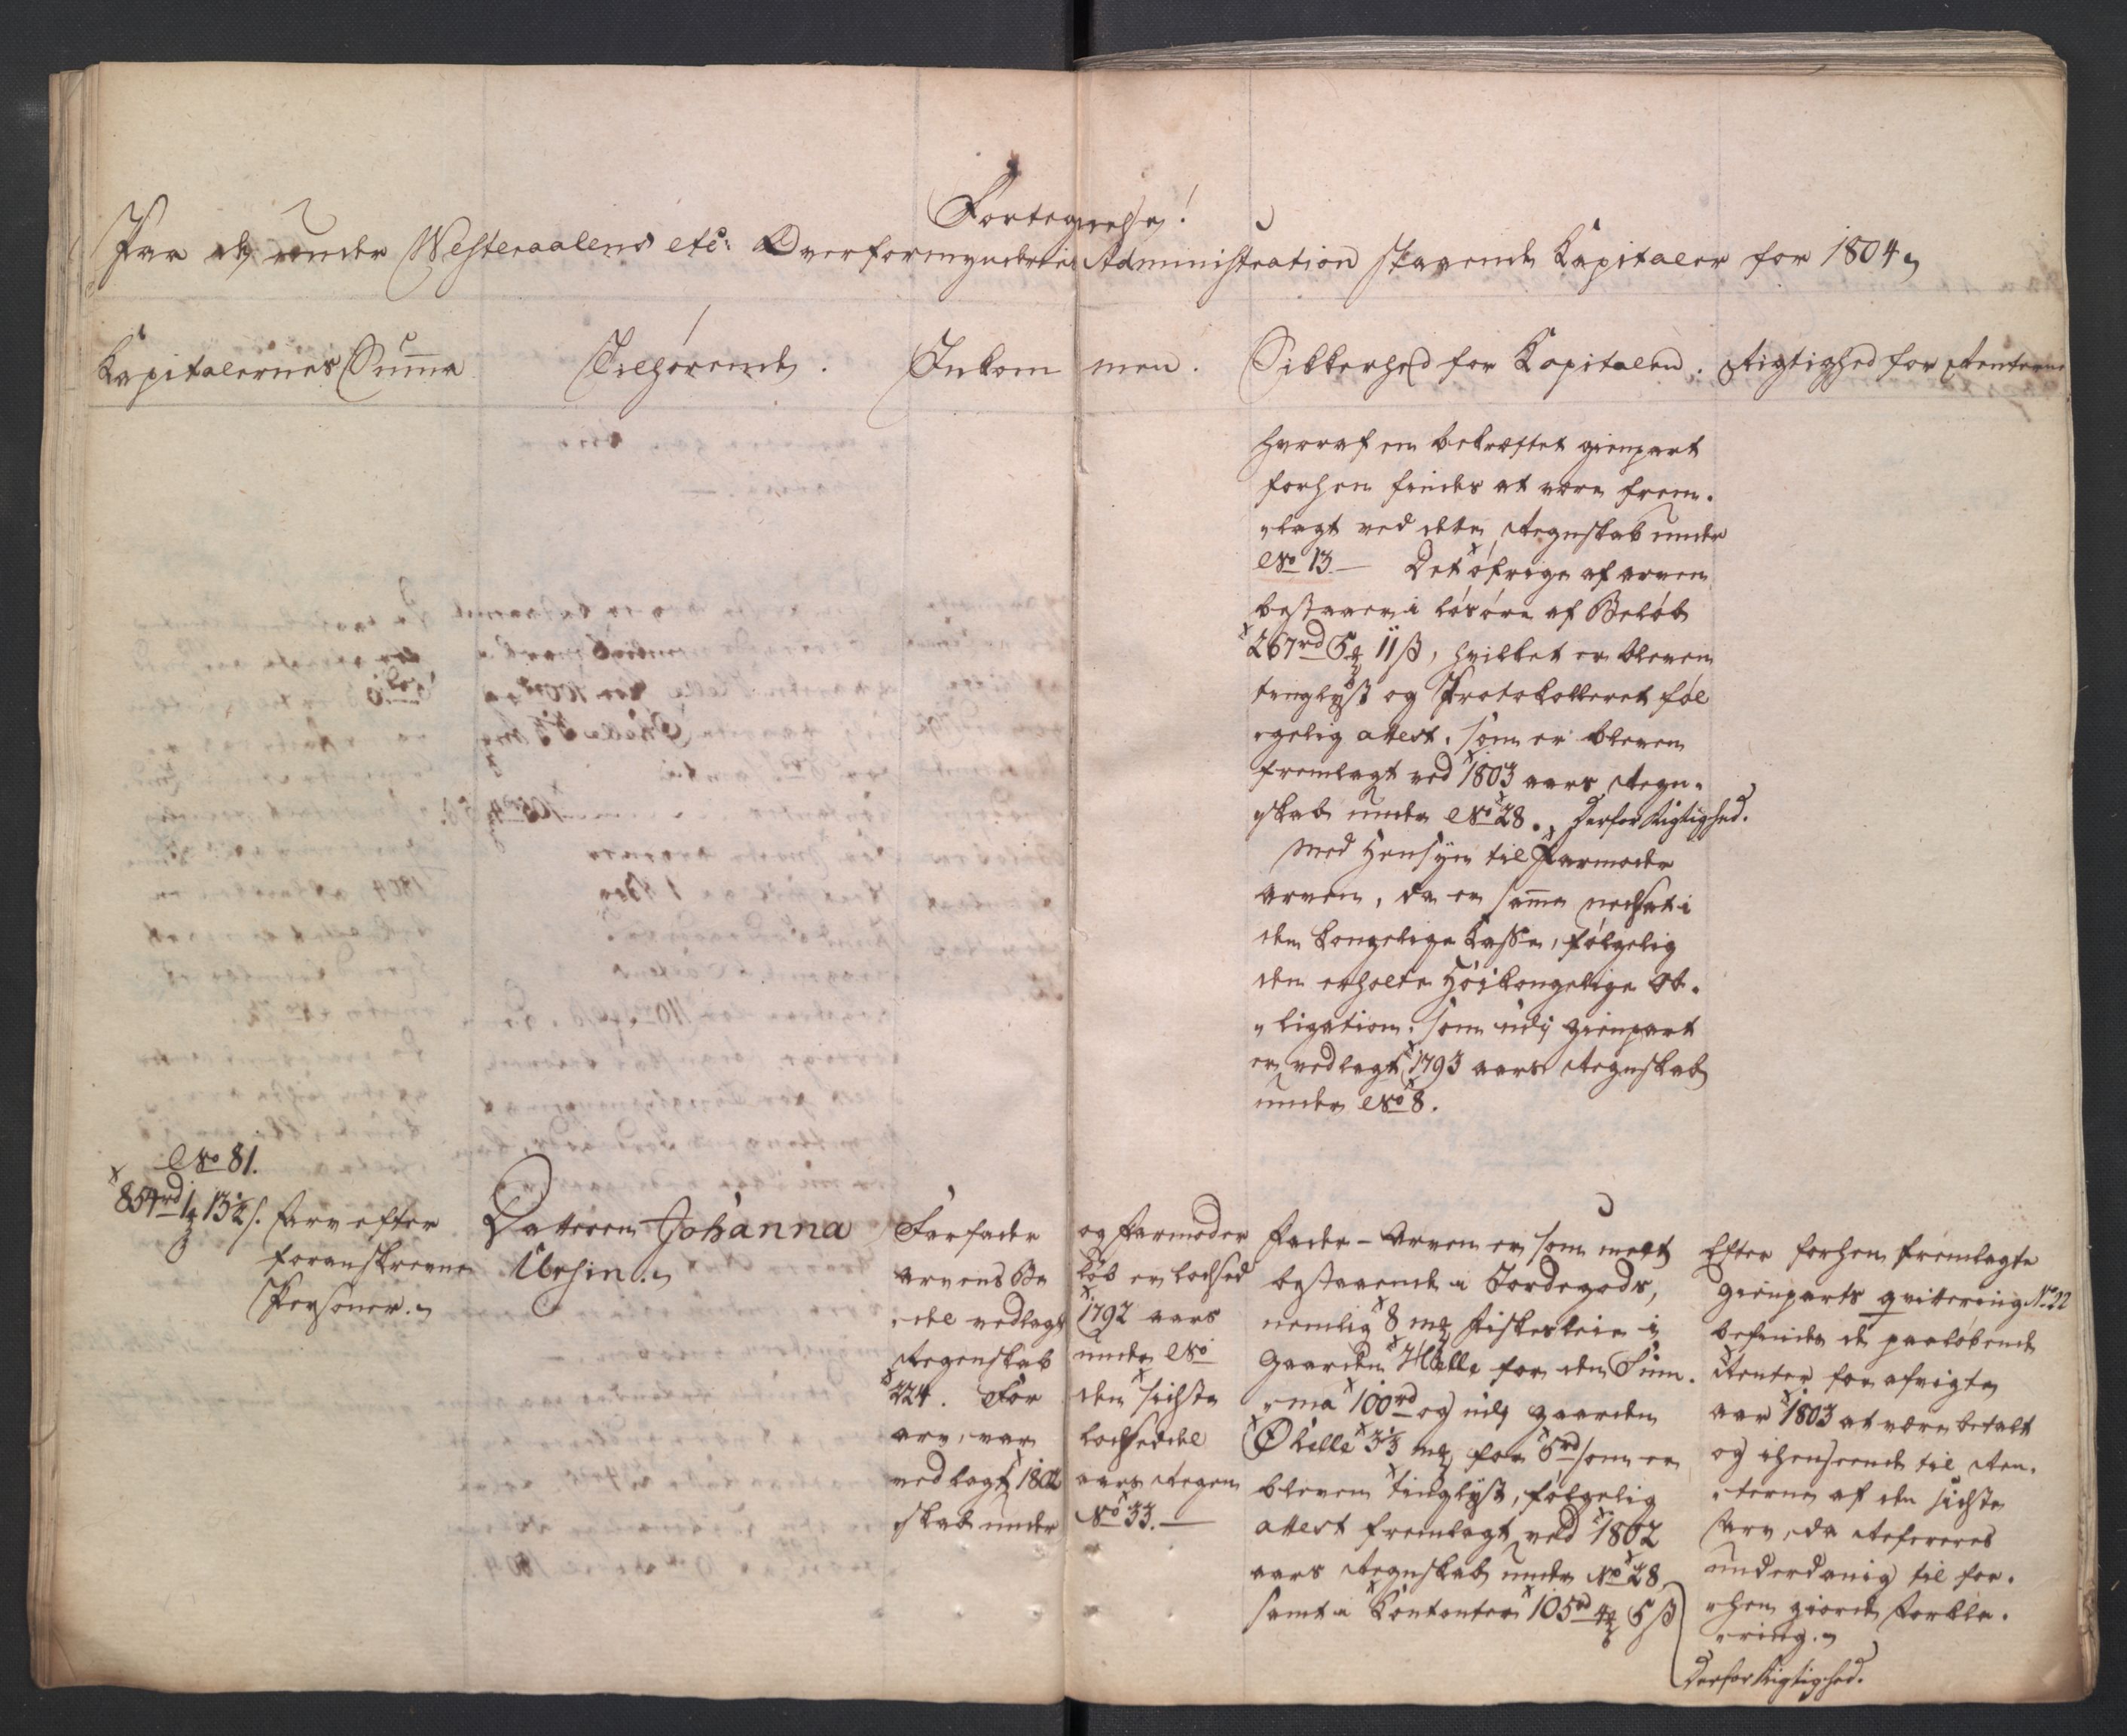 Fortegnelse!
Paa de under Westeraalens etc: Overformynderie Administration staaende Kapitaler for 1804,
Kapitalernes Summa
Tilhørende.
Inkom men.
Sikkerhed for Kapitalen.
Rigtighed for Renterne
hvoraf en bekræftet gienpart
forhen findes at være frem-
lagt ved dette Regnskab under
No 13 — Det øfrige af arven
bestaaer i løsøre af Beløb
267rd 5 11 ß, hvilket er bleven
tinglyst og Protokolleret føl
gelig attest, som er bleven
fremlagt ved 1803 aars Regn-
skab under No 28. Derfor Rigtighed.
Med Hensyn til Farmoder
arven, da er samme nedsat i
den kongelige Kasse, følgelig
den erholdte Høikongelige Ob-
ligation, som udj gienpart
er vedlagt 1793 aars Regnskab
under No 8.
No 81.
854rd 1 13½ s. Arv efter
foranskrevne
Personer.
Datteren Johanna
Ursin.
Farfader og Farmoder
arvens Be løb er lodsed
del vedlagt 1792 aars
Regenskab under No
224. For den sidste
arv, var lodseddel
vedlagt 1802 aars Regen
skab under No 33. —
Fader-Arven er som meldt
bestaaende i Jordegods,
nemlig 8 mk Fiskesleie i
Gaarden Helle for den Sum-
ma 100rd og udj gaarden
Øhelle 3⅓ mk for 5rd som er
bleven tinglyst, følgelig
attest fremlagt ved 1802
aars Regnskab under No 28
samt i Kontanter 105rd 4 5 ß
Efter forhen fremlagte
Gienparts qvittering No 22
befindes de paaløbende
Renter for afvigte
aar 1803 at være betalt
og ihenseende til Ren-
terne af den sidste
arv, da Refereres
underdanig til for-
hen giorde Forkla-
ring.
Derfor Rigtighed.